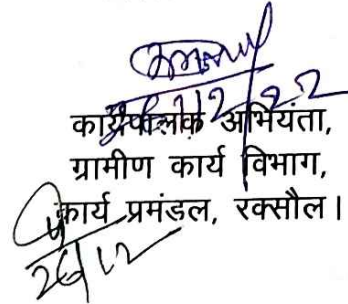 कार्यपालक अभियंता,
ग्रामीण कार्य विभाग,
कार्य प्रमंडल, रक्सौल।
26/12